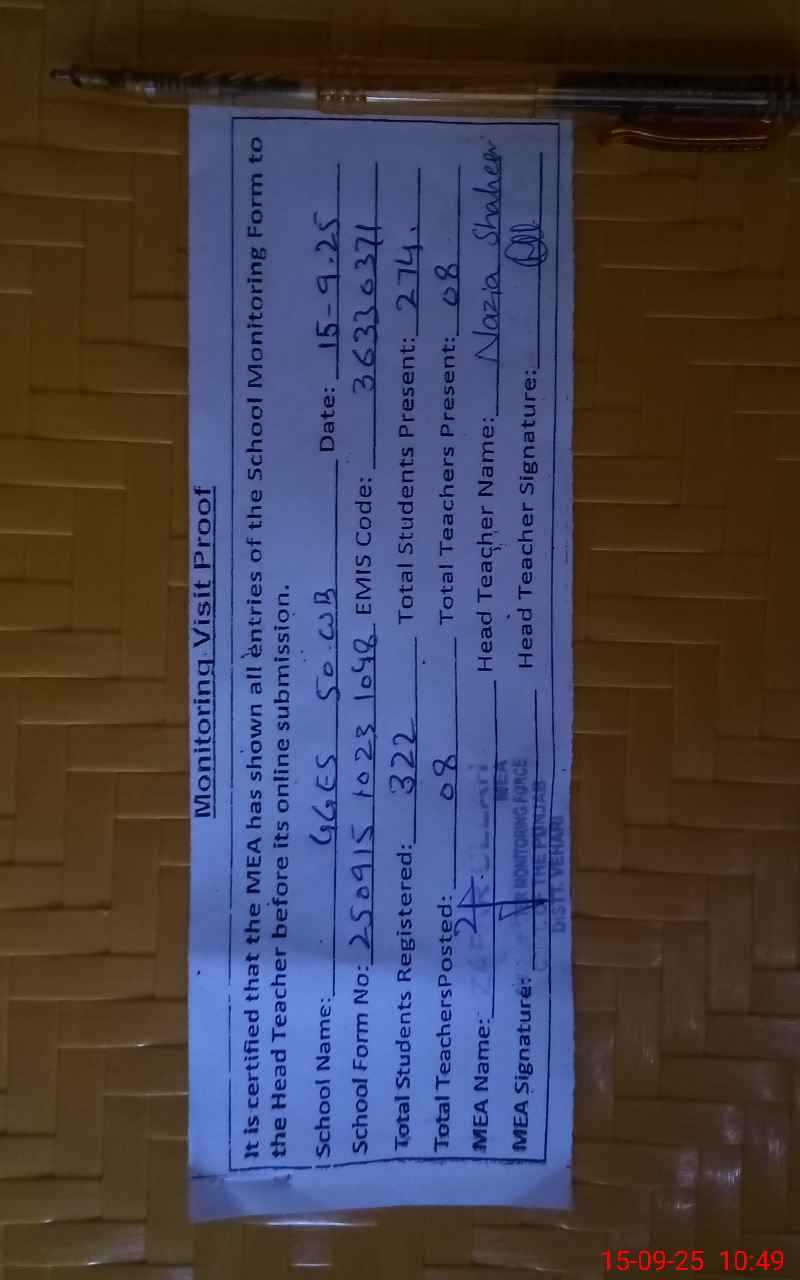 Monitoring Visit Proof
It is certified that the MEA has shown all entries of the School Monitoring Form to
the Head Teacher before its online submission.
School Name: GGES 50.WB Date: 15-9-25
School Form No: 250915 1023 1048 EMIS Code: 36330371
Total Students Registered: 322 Total Students Present: 274.
Total TeachersPosted: 08 Total Teachers Present: 08
MEA Name: Head Teacher Name: Nazia Shaheen
MEA
MEA Signature: Head Teacher Signature:
MONITORING FORCE
THE PUNJAB
DISTT. VEHARI
15-09-25 10:49